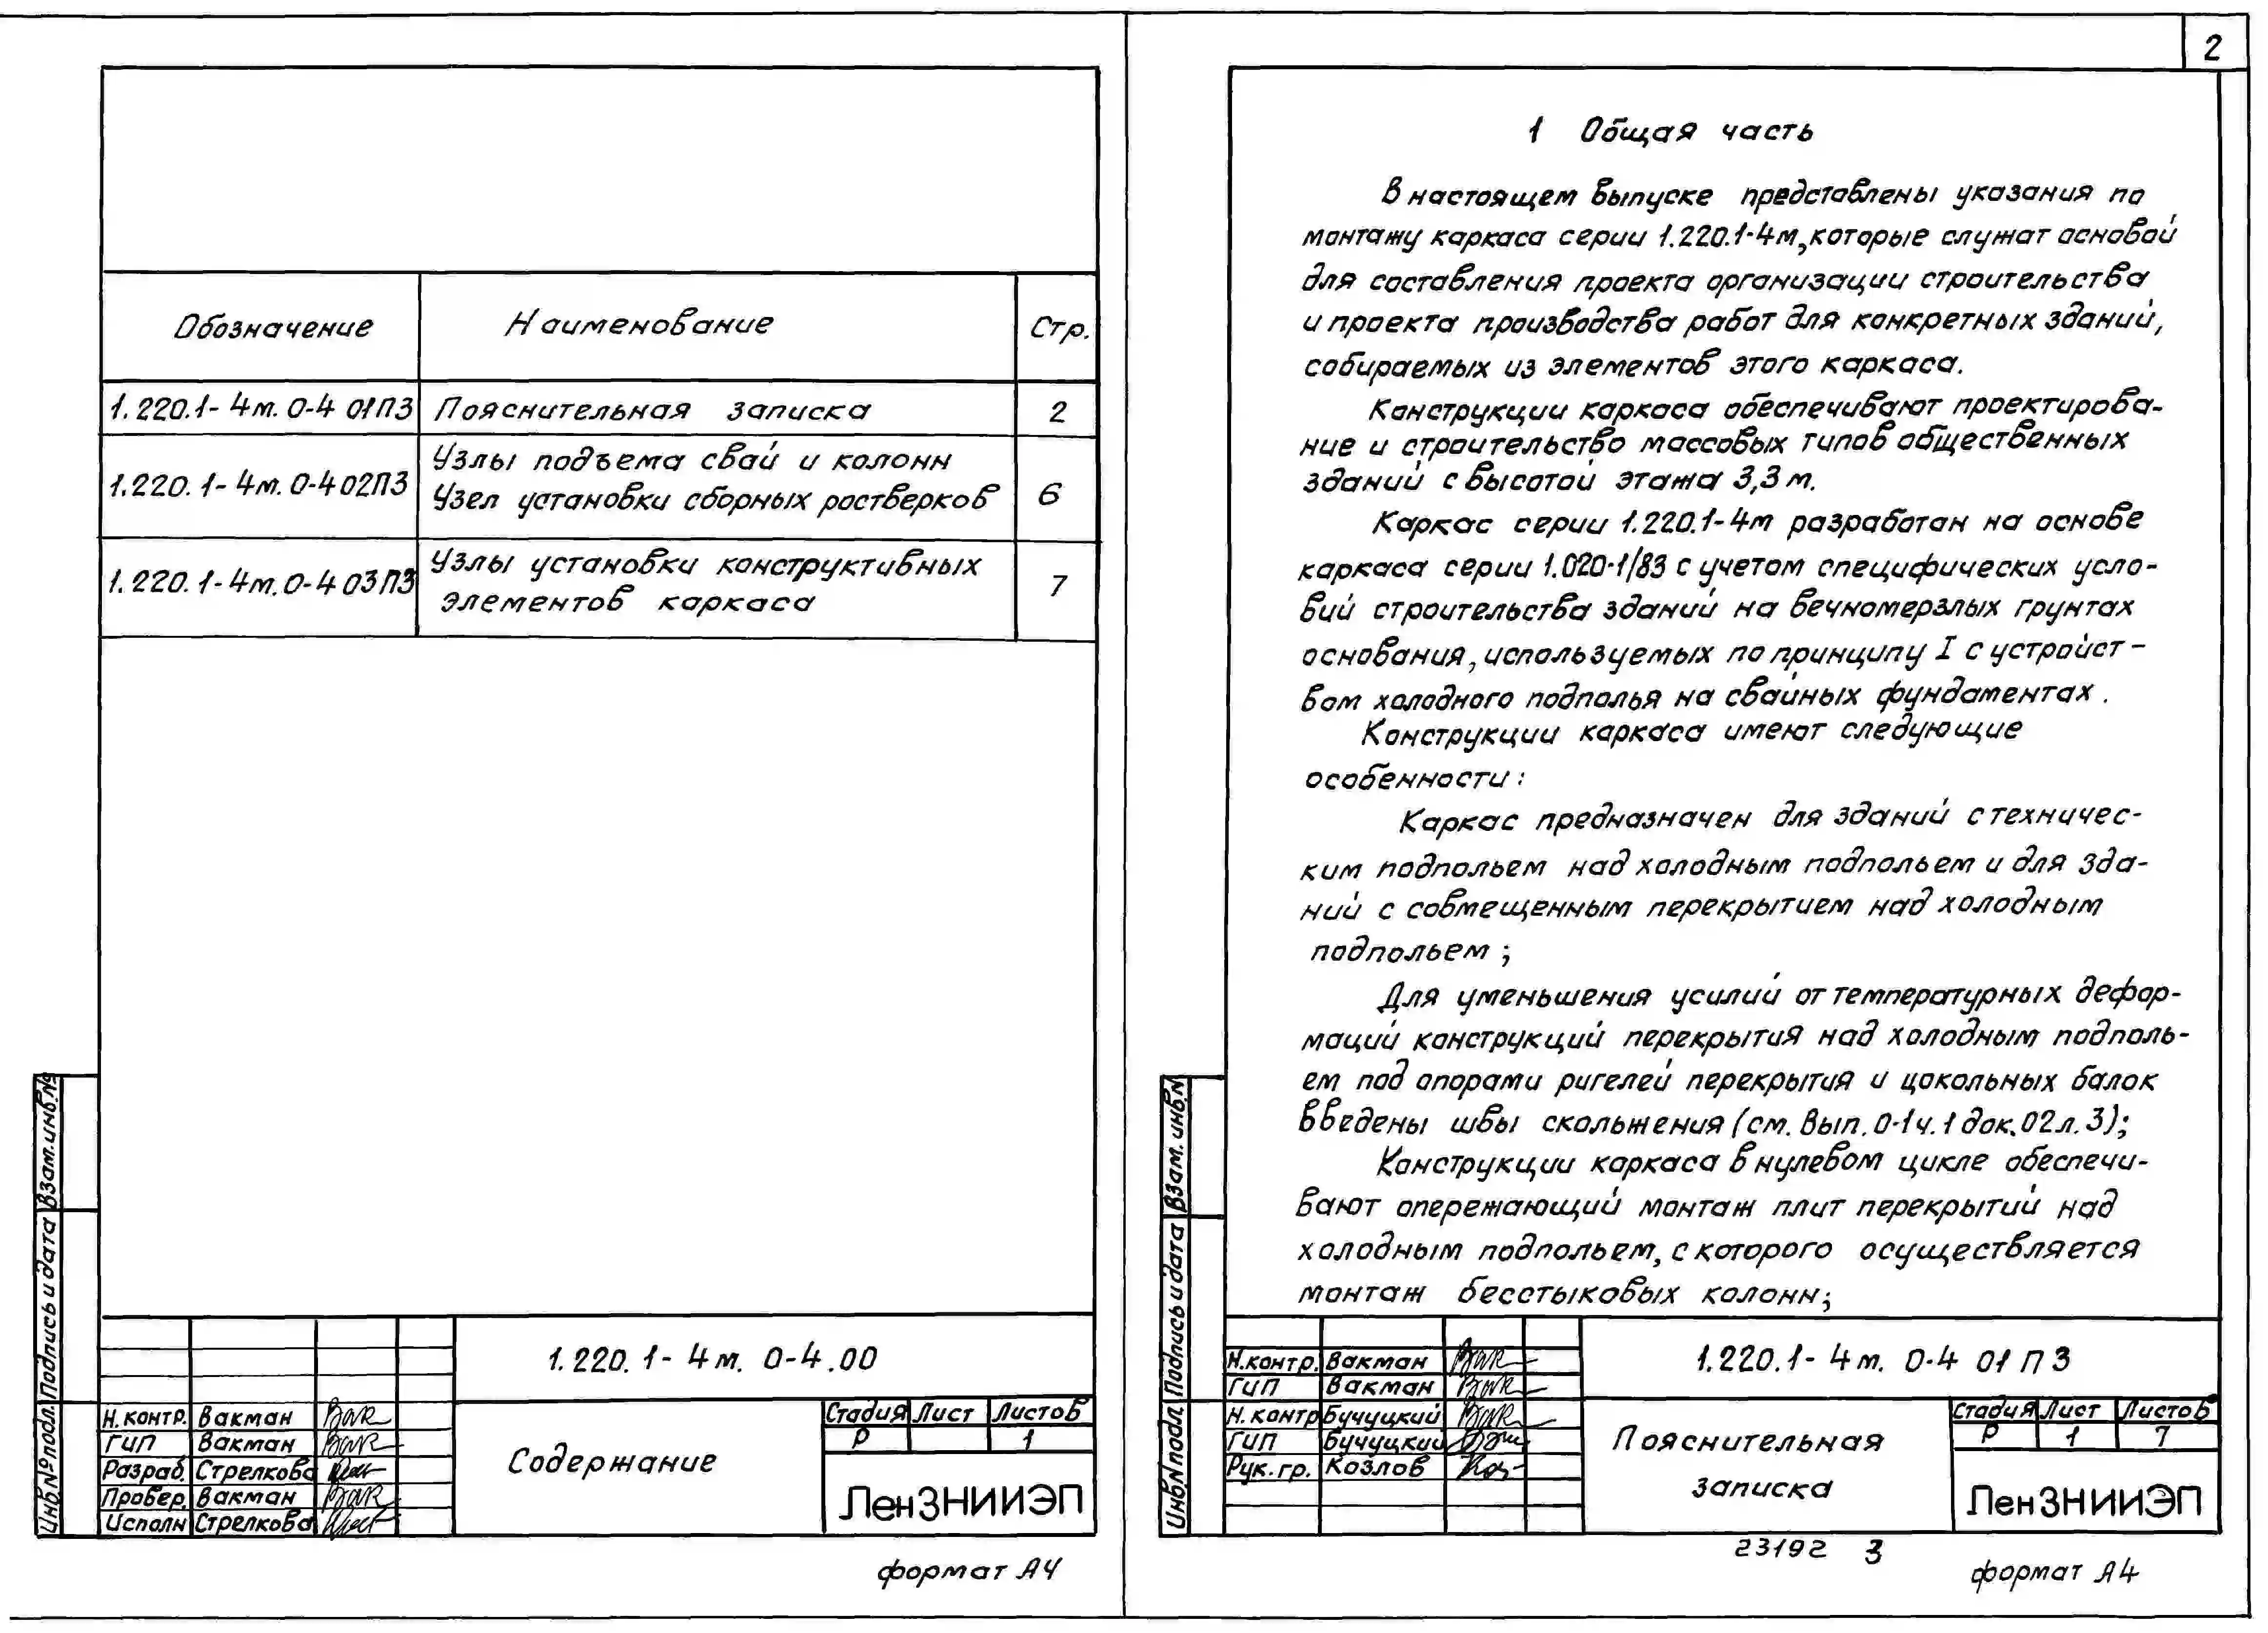 Обозначение Наименование Стр.
1.220.1-4м.0-4 01ПЗ Пояснительная записка 2
1.220.1-4м.0-4 02ПЗ Узлы подъема свай и колонн
Узел установки сборных ростверков 6
1.220.1-4м.0-4 03ПЗ Узлы установки конструктивных
элементов каркаса 7
Взам.инв.№
Подпись и дата
Инв.№подл.
1.220.1-4м. 0-4.00
Н.контр. Вакман
ГИП Вакман
Разраб. Стрелкова
Провер. Вакман
Исполн Стрелкова
Содержание
Стадия Лист Листов
Р 1
ЛенЗНИИЭП
формат А4
2
1 Общая часть
В настоящем выпуске представлены указания по
монтажу каркаса серии 1.220.1-4м, которые служат основой
для составления проекта организации строительства
и проекта производства работ для конкретных зданий,
собираемых из элементов этого каркаса.
Конструкции каркаса обеспечивают проектирова-
ние и строительство массовых типов общественных
зданий с высотой этажа 3,3 м.
Каркас серии 1.220.1-4м разработан на основе
каркаса серии 1.020-1/83 с учетом специфических усло-
вий строительства зданий на вечномерзлых грунтах
основания, используемых по принципу I с устройст-
вом холодного подполья на свайных фундаментах.
Конструкции каркаса имеют следующие
особенности:
Каркас предназначен для зданий с техничес-
ким подпольем над холодным подпольем и для зда-
ний с совмещенным перекрытием над холодным
подпольем;
Для уменьшения усилий от температурных дефор-
маций конструкций перекрытия над холодным подполь-
ем под опорами ригелей перекрытия и цокольных балок
введены швы скольжения (см. вып. 0-1 ч. 1 док. 02 л. 3);
Конструкции каркаса в нулевом цикле обеспечи-
вают опережающий монтаж плит перекрытий над
холодным подпольем, с которого осуществляется
монтаж бесстыковых колонн;
Взам.инв.№
Подпись и дата
Инв.№подл.
1.220.1-4м. 0-4 01 ПЗ
Н.контр. Вакман
ГИП Вакман
Н.контр Бучуцкий
ГИП Бучуцкий
Рук.гр. Козлов
Пояснительная
записка
Стадия Лист Листов
Р 1 7
ЛенЗНИИЭП
23192 3
формат А4